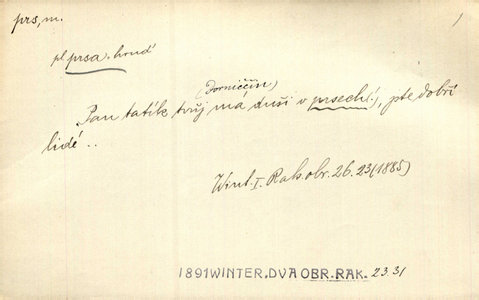 prs, m. 1
pl prsa. hruď
(Dorniččin)
Pan tatík tvůj má duši v prsech(!), pte dobří
lidé ..
Wint. I. Rak. obr. 26. 23 (1885)
1891 WINTER, DVA OBR. RAK. 23.31